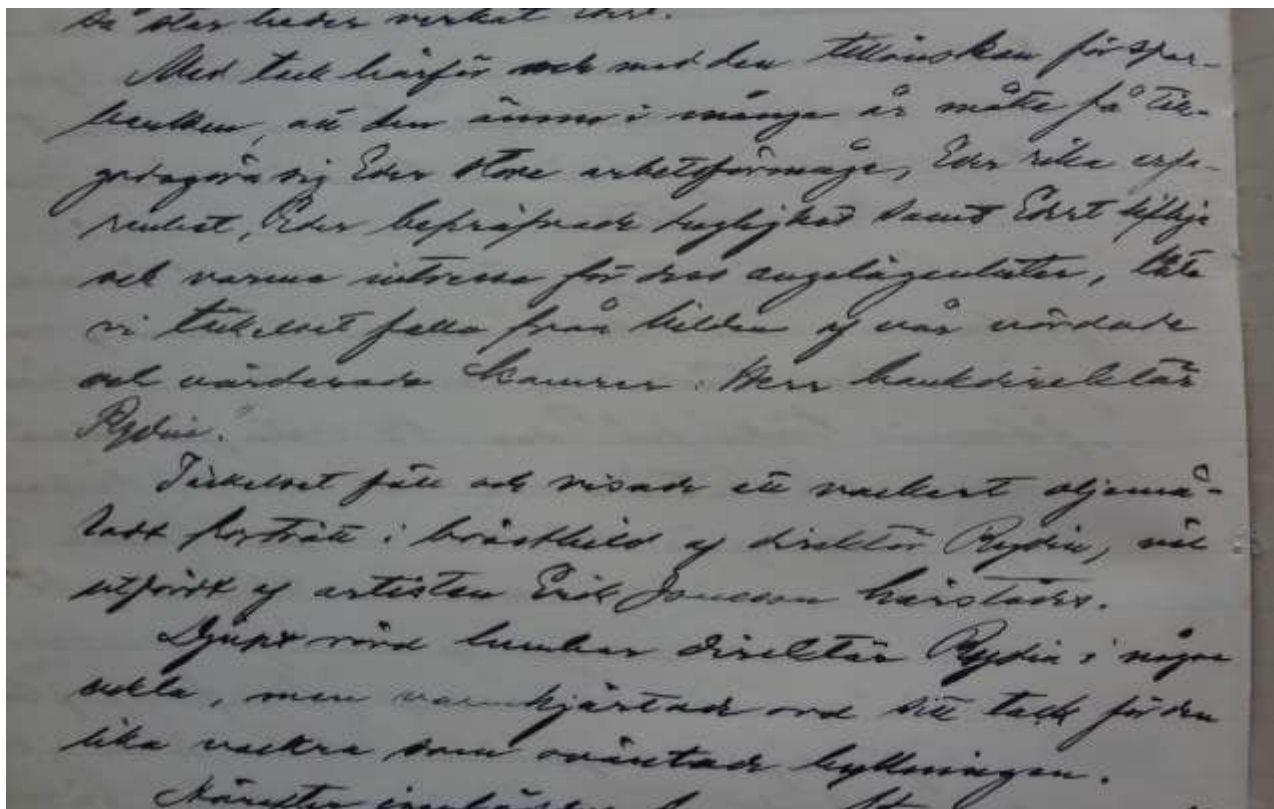 så stor heder verkat här.
Med tack härför och med den tillönskan för spar-
banken, att den ännu i många år måtte få till-
godogöra sig Eder stora arbetsförmåga, Eder rika erfa-
renhet, Eder bepröfvade duglighet samt Edert lifliga
och varma intresse för dess angelägenheter, låta
vi täckelset falla från bilden af vår vördade
och värderade kamrer, Herr bankdirektör
Rydin."
Täckelset föll och visade ett vackert oljemå-
ladt porträtt i bröstbild af direktör Rydin, väl
utfördt af artisten Erik Jonsson härstädes.
Djupt rörd hembar direktör Rydin i några
enkla, men varmhjärtade ord sitt tack för den
lika vackra som oväntade hyllningen.
Härefter